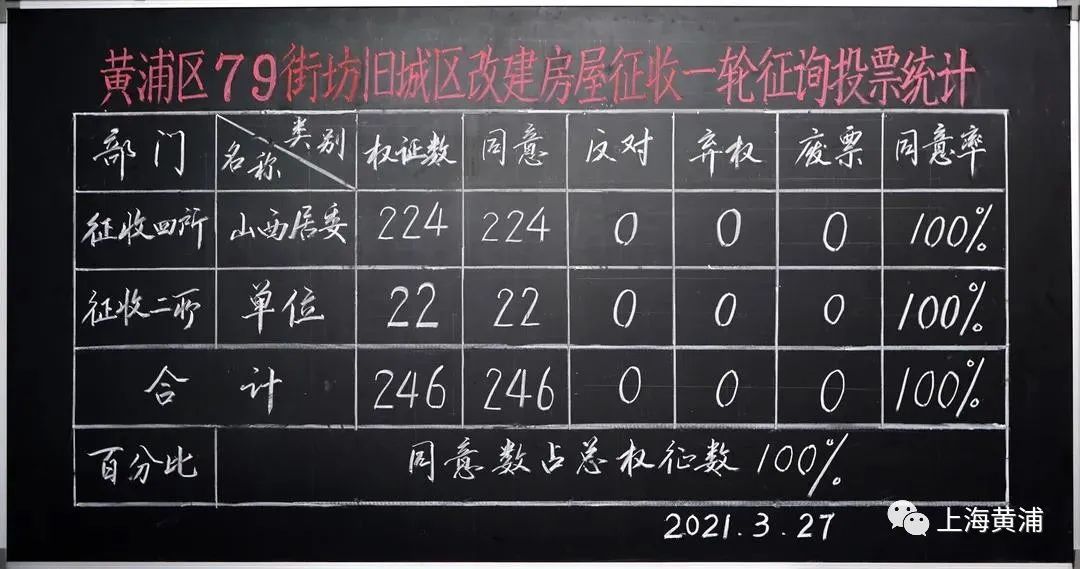 黄浦区79街坊旧城区改建房屋征收一轮征询投票统计
部门 名称 类别 权证数 同意 反对 弃权 废票 同意率
征收四所 山西居委 224 224 0 0 0 100%
征收二所 单位 22 22 0 0 0 100%
合计 246 246 0 0 0 100%
百分比 同意数占总权征数100%
2021.3.27
上海黄浦